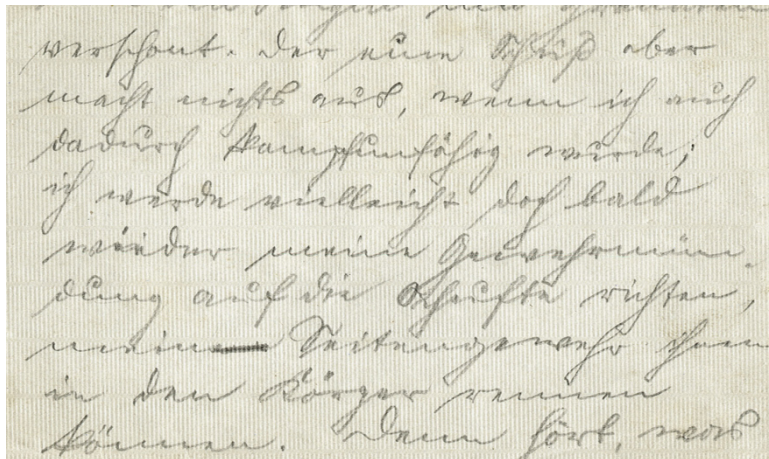 den Kugeln und Granaten
verschont. Der eine Schuß aber
macht nichts aus, wenn ich auch
dadurch kampfunfähig wurde;
ich werde vielleicht doch bald
wieder meine Gewehrmün-
dung auf die Schufte richten,
mein Seitengewehr ihnen
in den Körper rennen
können. Denn hört, was